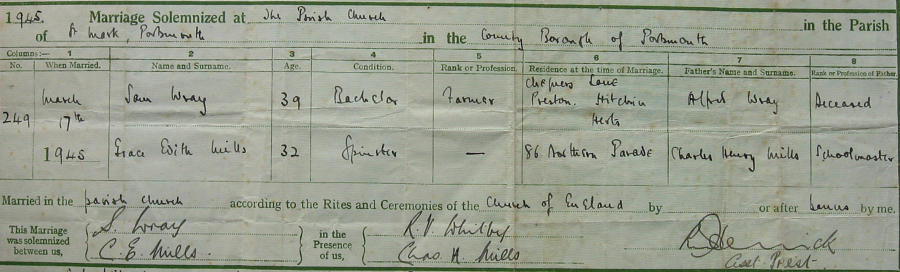 1945. Marriage Solemnized at The Parish Church in the Parish
of St Mark, Portsmouth in the County Borough of Portsmouth
Columns:— 1 2 3 4 5 6 7 8
No. When Married. Name and Surname. Age. Condition. Rank or Profession. Residence at the time of Marriage. Father's Name and Surname. Rank or Profession of Father.
249 March 17th 1945 Sam Wray 39 Bachelor Farmer Chequers Lane Preston. Hitchin Herts Alfred Wray Deceased
Grace Edith Mills 32 Spinster — 86 Northern Parade Charles Henry Mills Schoolmaster
Married in the parish church according to the Rites and Ceremonies of the Church of England by or after banns by me.
This Marriage was solemnized between us, S. Wray in the Presence of us, R. V. Whitby
G. E. Mills. Chas. H. Mills
Asst. Priest